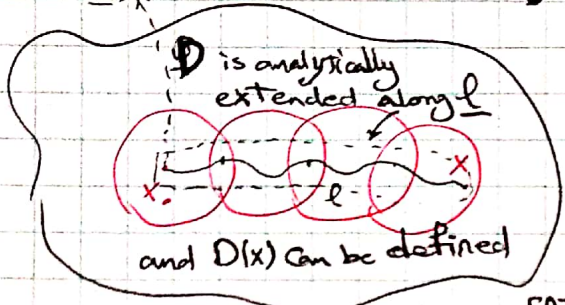 D is analytically
extended along l
x
x.
l
and D(x) can be defined